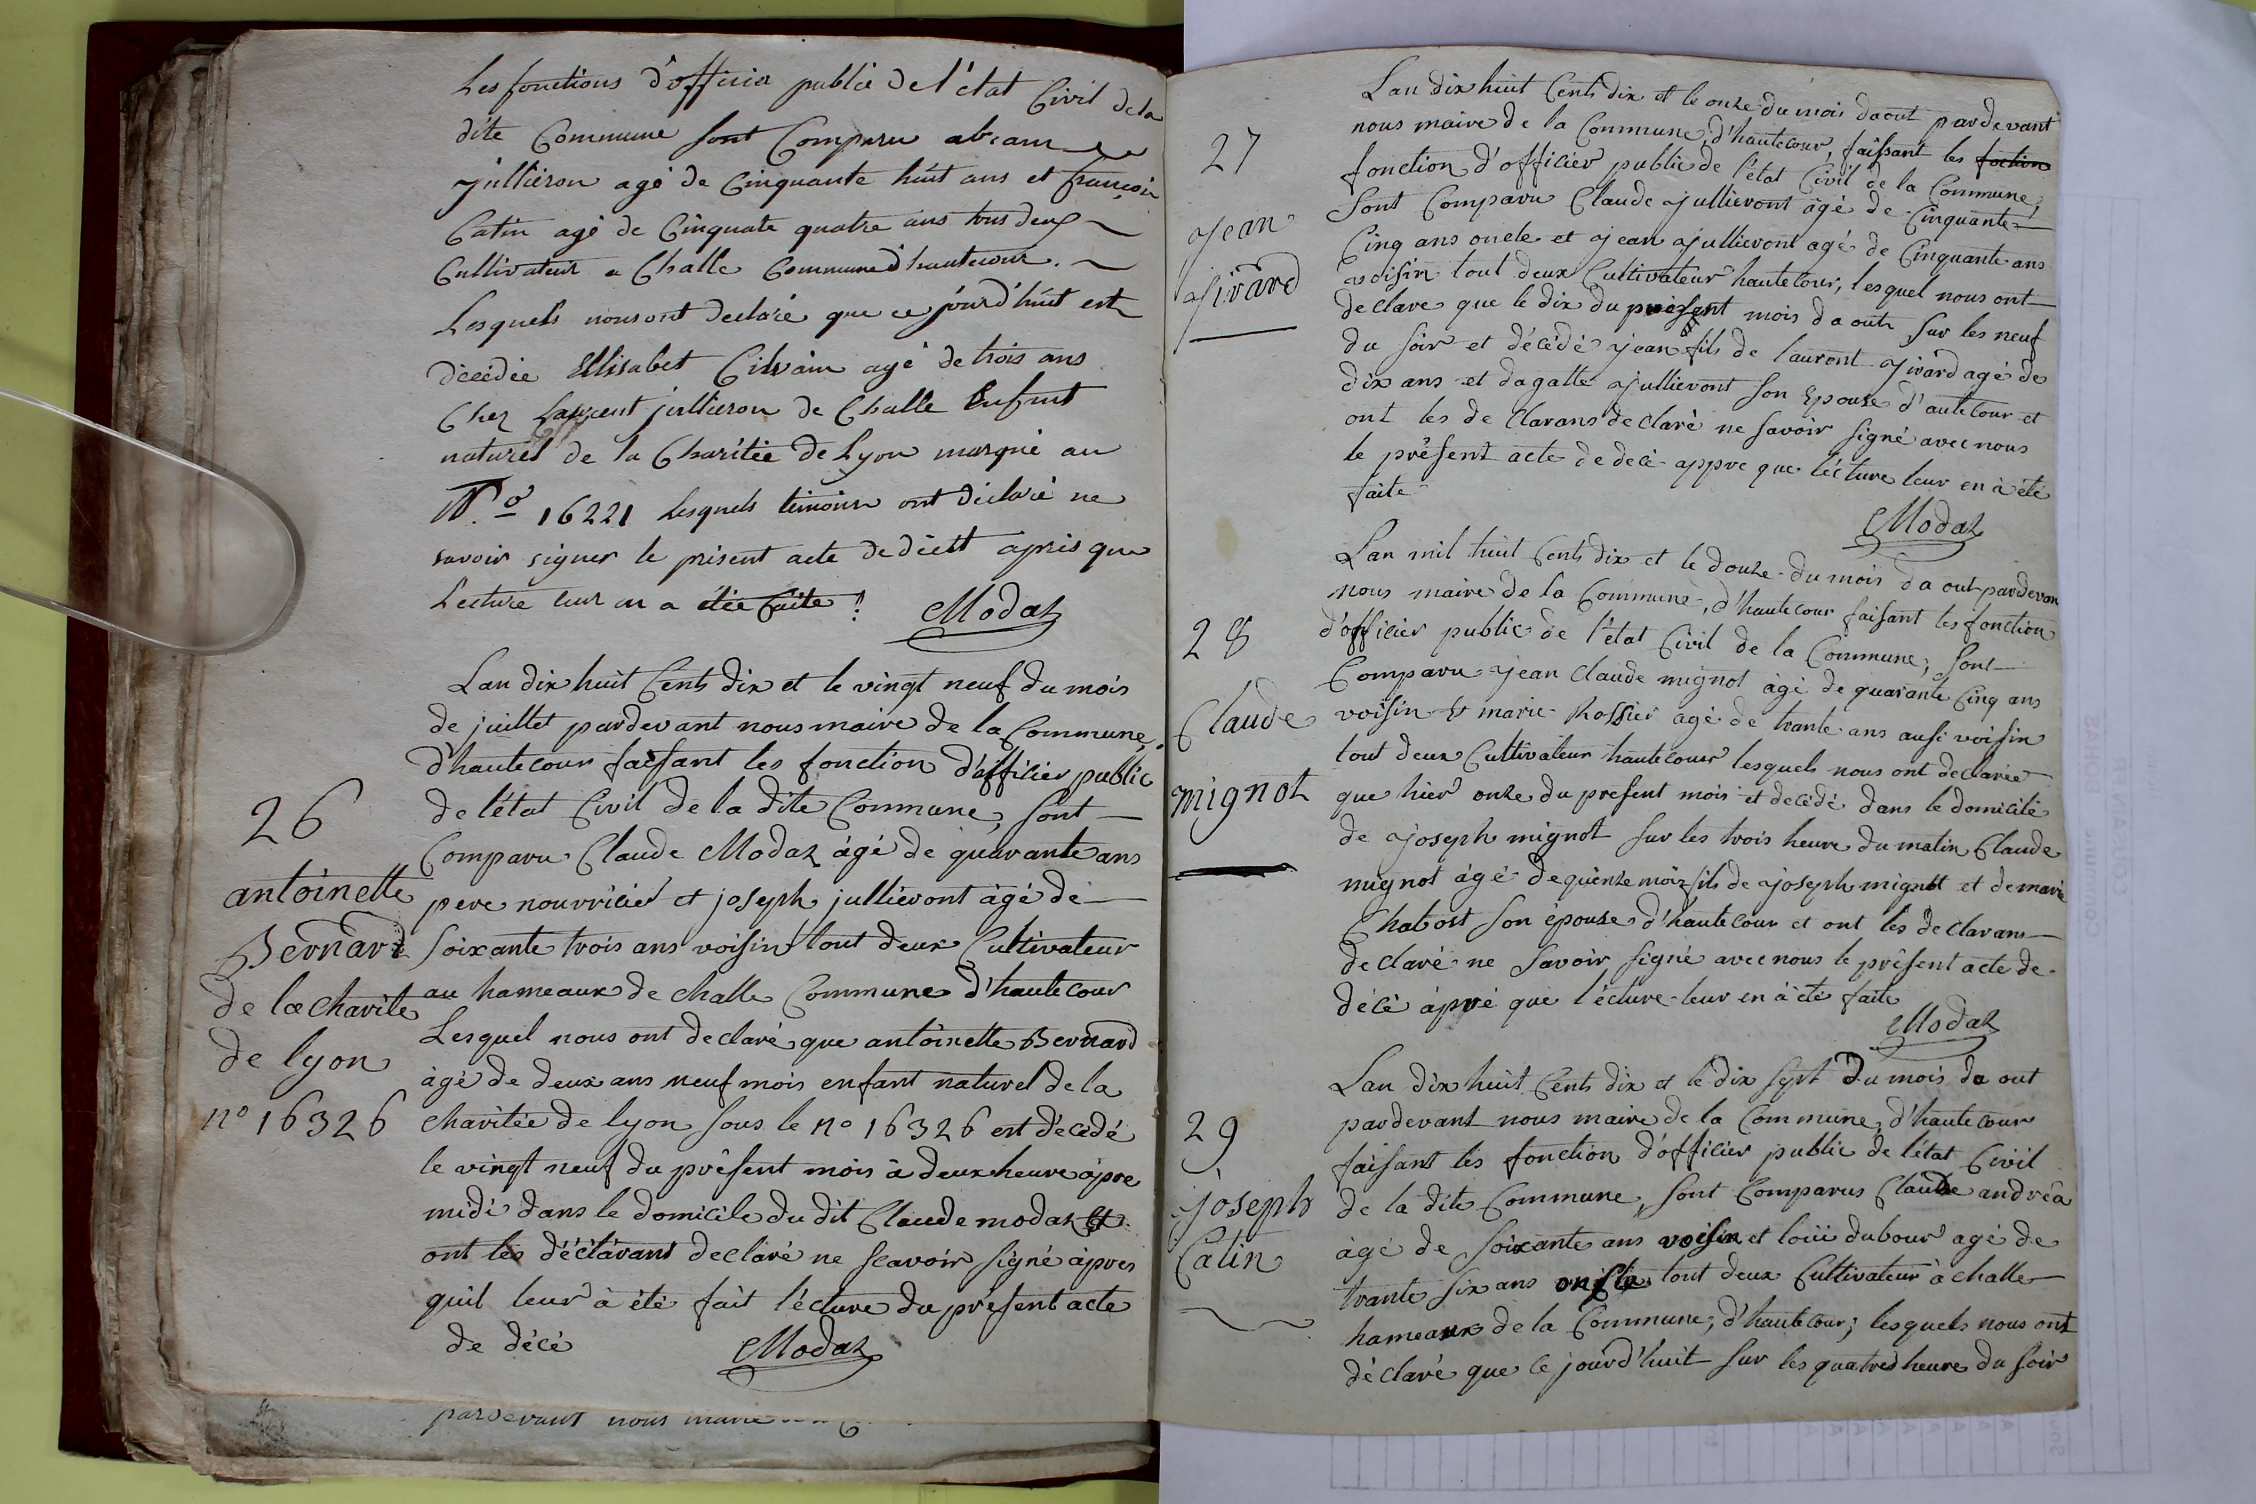 Les fonctions d'officier public de l'état Civil de la
dite Commune sont Comparu abram
jullieron agé de Cinquante huit ans et françois
Catin agé de Cinquate quatre ans tous deux
Cultivateur a Challe Commune d'hautecour.
Lesquels nous ont declaré que ce jourd'huit est
décédée Ellisabet agé de trois ans
Chez Laurent jullieron de Challe Enfent
naturel de la Charitée de Lyon marqué au
N.o 16221 Lesquels timoins ont déclaré ne
savoir signer le présent acte de après que
Lecture leur en a étée faite
Modaz
Lan dix huit Cents dix et le vingt neuf du mois
de juillet pardevant nous maire de la Commune,
d'hautecour faisant les fonction d'officier public
26
de l'état Civil de la dite Commune, sont
Comparu Claude Modaz àgé de quarante ans
antoinette
pere nourricier et joseph jullieront àgé de
Bernard
soixante trois ans voisin tout deux Cultivateur
de la charité
au hameaux de challe Commune d'hautecour
Lesquel nous ont declaré que antoinette Bernard
de lyon
àgé de deux ans neuf mois enfant naturel de la
no 16326
charitée de lyon sous le no 16326 est décédé
le vingt neuf du présent mois à deux heure àpre
midi dans le domicile du dit Claude modaz et
ont les déclarant declaré ne scavoir signé àpres
quil leur à été fait l'écture du présent acte
de décé
Modaz
Lan dix huit Cents dix et le onze du mois daout pardevant
27
nous maire de la Commune, d'hautecour, faisant les foction
fonction d'officier public de l'état Civil de la Commune,
Jean
Sont Comparu Claude jullieront àgé de Cinquante
Cinq ans oncle et jean jullieront agé de Cinquante ans
jirard
voisin tout deux Cultivateur hautecour, lesquel nous ont
declare que le dix du présent mois daout sur les neuf
du soir et décédé jean fils de lauront jirard agé de
dix ans et dagatte jullieront son Epouse d'autecour et
ont les de clarans declaré ne savoir signé avec nous
le présent acte de decé appre que lécture leur en à été
faite
Modaz
Lan mil huit Cents dix et le douze du mois da out pardevan
nous maire de la Commune, d'hautecour faisant les fonction
28
d'officier public de l'état Civil de la Commune, sont
Comparu jean Claude mignot àgé de quarante Cinq ans
Claude
voisin & marie Rossier agé de trante ans ausi voisin
tout deux Cultivateur hautecour lesquels nous ont declarée
mignot
que hier onze du present mois et decédé dans le domicile
de joseph mignot sur les trois heure du matin Claude
mignot àgé de quinze mois fils de joseph mignot et de marie
Chabost son épouse d'hautecour et ont les declarans
declaré ne savoir signé avec nous le présent acte de
décé àpré que l'écture leur en à été faite
Modaz
Lan dix huit Cents dix et le dix sept du mois da out
29
pardevant nous maire de la Commune, d'hautecour
faisant les fonction d'officier public de l'état Civil
joseph
de la dite Commune, sont Comparus Claude andréa
Catin
àgé de soixante ans voisin et loüi dubour agé de
trante six ans oncle tout deux Cultivateur à challe
hameaux de la Commune, d'hautecour, lesquels nous ont
déclaré que ce jourd'huit sur les quatres heure du soir
pardevant nous maire